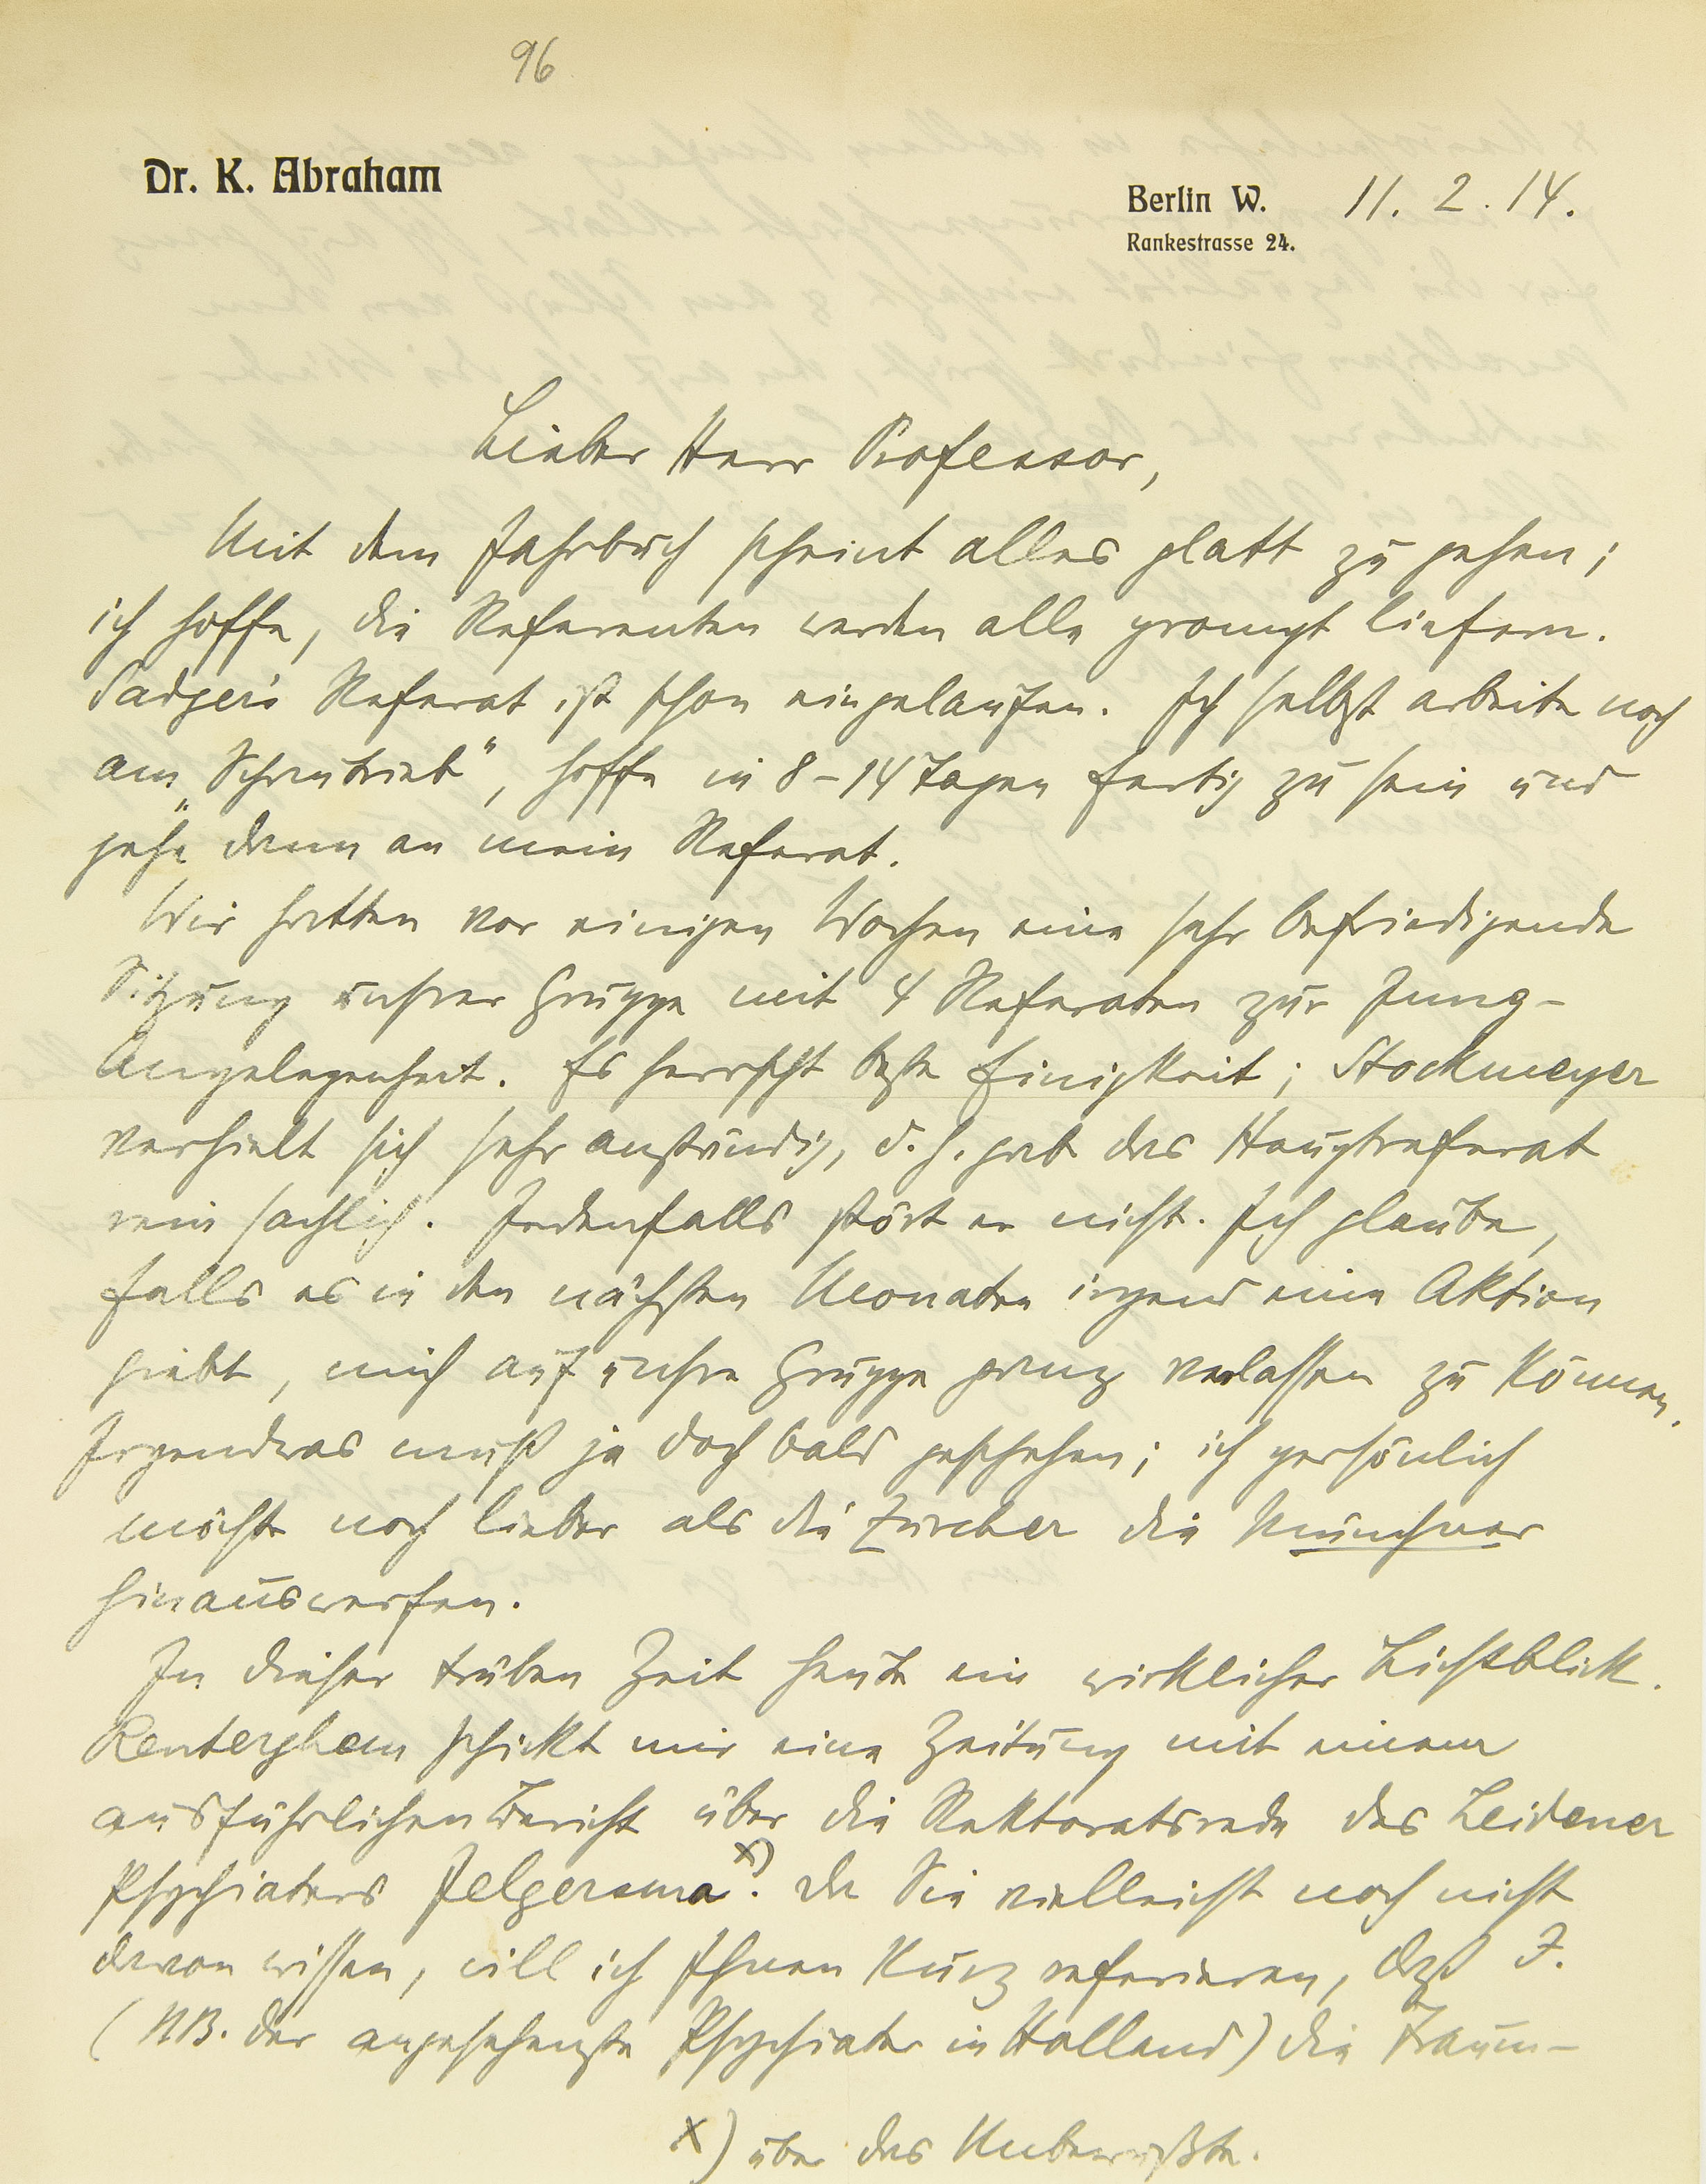 96
Dr. K. Abraham
Berlin W. 11. 2. 14.
Rankestrasse 24.
Lieber Herr Professor,
Mit dem Jahrbuch scheint alles glatt zu gehen;
ich hoffe, die Referenten werden alle prompt liefern.
Sadgers Referat ist schon eingelaufen. Ich selbst arbeite noch
am „Schautrieb“, hoffe in 8–14 Tagen fertig zu sein und
gehe dann an mein Referat.
Wir hatten vor einigen Wochen eine sehr befriedigende
Sitzung unsrer Gruppe mit 4 Referaten zur Jung-
Angelegenheit. Es herrscht beste Einigkeit; Stockmeyer
verhielt sich sehr anständig, d. h. gab das Hauptreferat
rein sachlich. Jedenfalls stört er nicht. Ich glaube,
falls es in den nächsten Monaten irgend eine Aktion
giebt, mich auf unsre Gruppe ganz verlassen zu können.
Irgendwas muß ja doch bald geschehen; ich persönlich
möchte noch lieber als die Zürcher die Münchner
hinauswerfen.
In dieser trüben Zeit heute ein wirklicher Lichtblick.
Renterghem schickt mir eine Zeitung mit einem
ausführlichen Bericht über die Rektoratsrede des Leidener
Psychiaters Jelgersma x). Da Sie vielleicht noch nicht
davon wissen, will ich Ihnen kurz referieren, daß J.
(NB. der angesehenste Psychiater in Holland) die Traum-
x) über das Unbewußte.